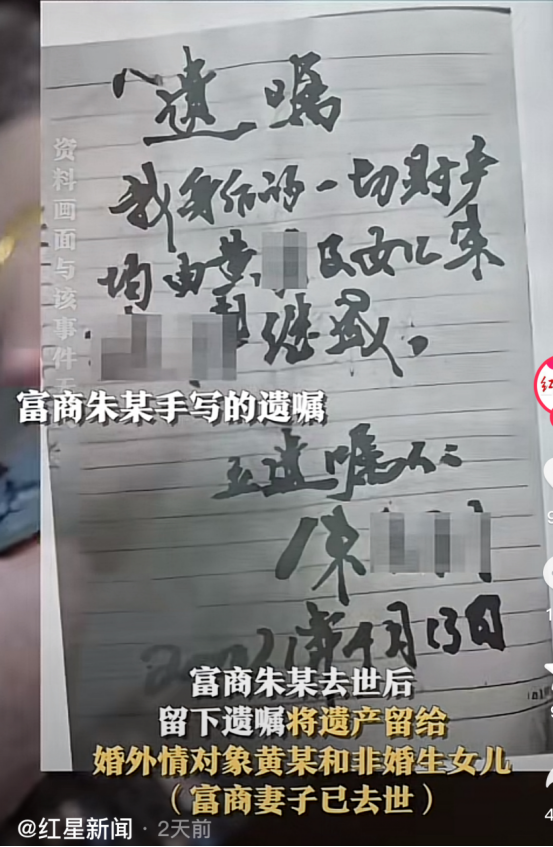 遗嘱
我身后的一切财产
均由黄 及女儿朱
继承。
立遗嘱人:
朱
2021年 月13日
资料画面与该事件无
富商朱某手写的遗嘱
富商朱某去世后
留下遗嘱将遗产留给
婚外情对象黄某和非婚生女儿
(富商妻子已去世)
@红星新闻 · 2天前